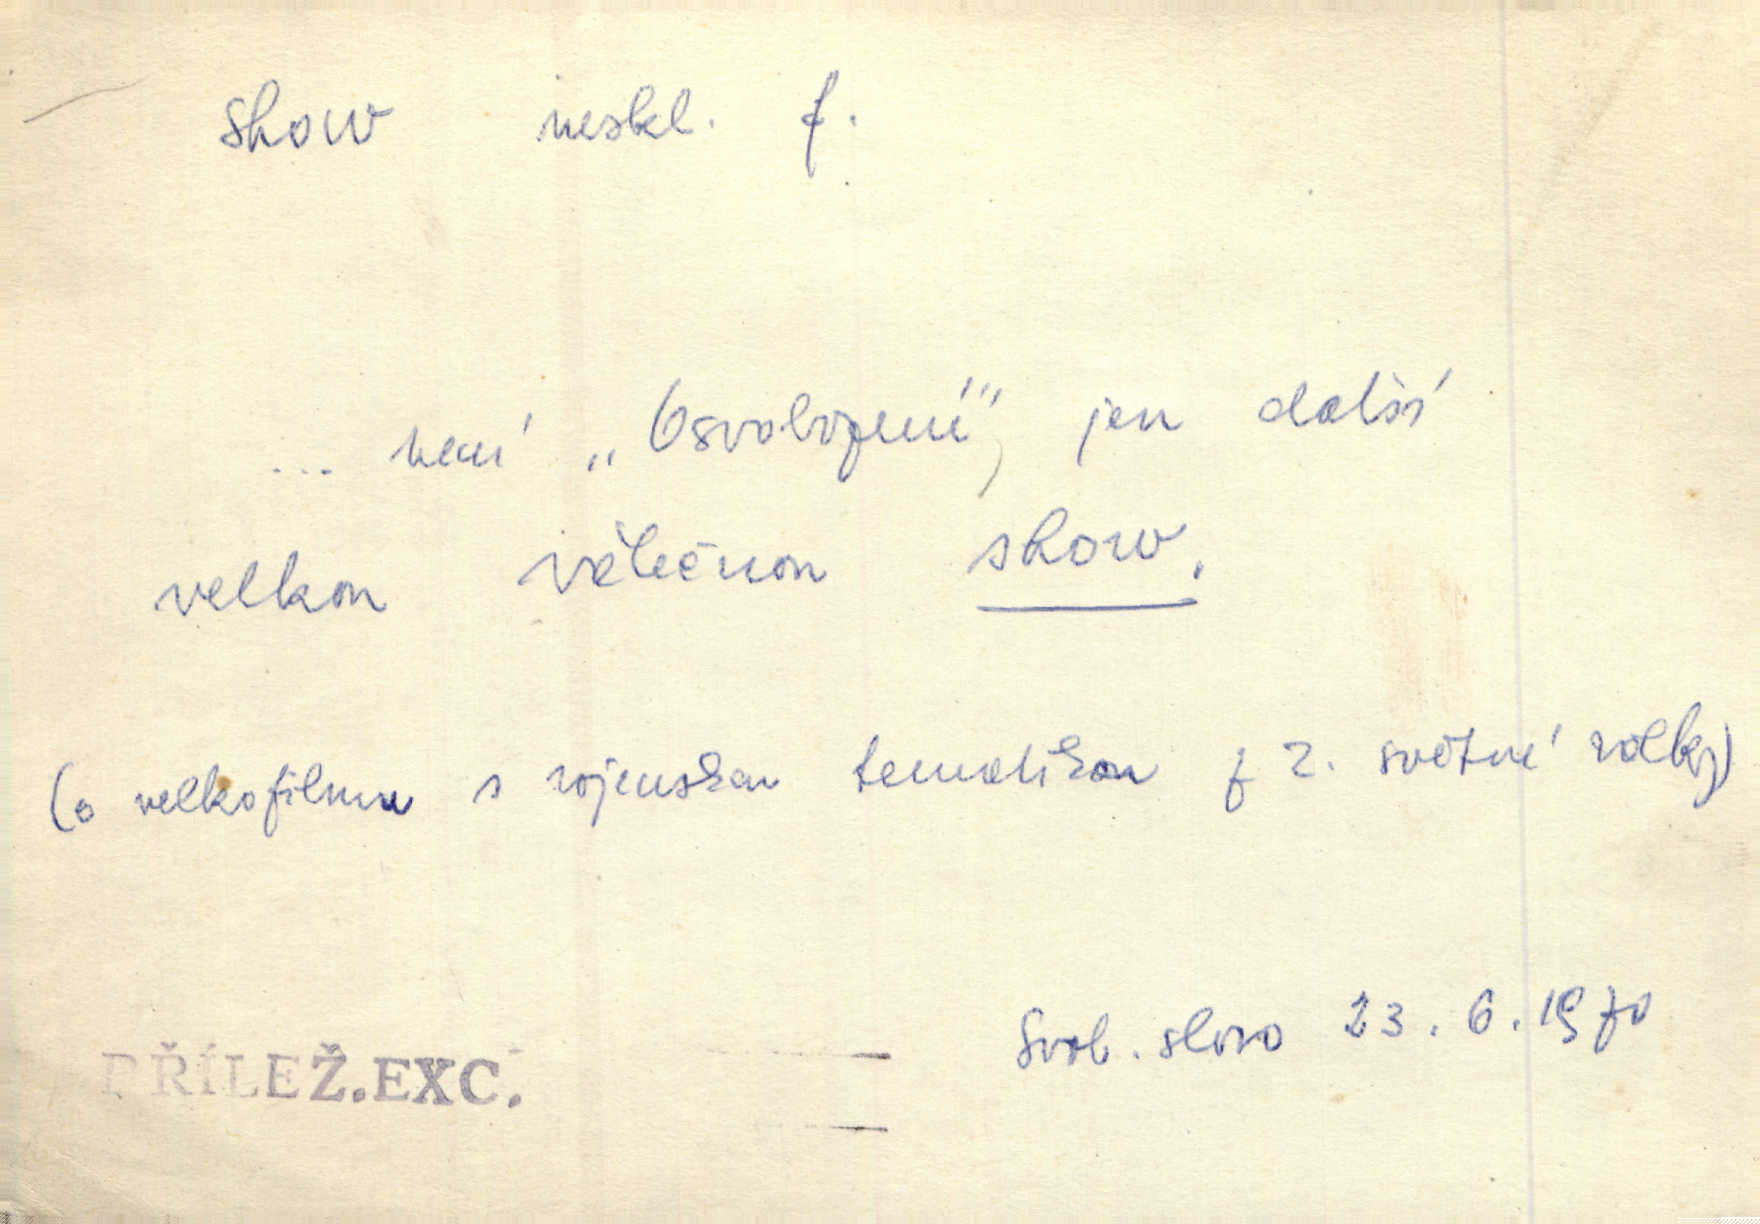 show neskl. f.
... není „Osvobození", jen další
velkou válečnou show.
(o velkofilmu s vojenskou tematikou z 2. světné války)
Svob. slovo 23. 6. 1970
PŘÍLEŽ.EXC.